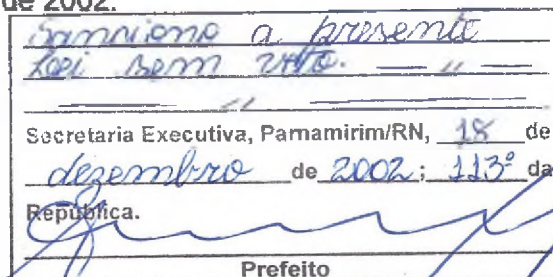 de 2002.
Sanciono a presente
Lei sem veto. — " —
— " —
Secretaria Executiva, Parnamirim/RN, 18 de
dezembro de 2002; 113º da
República.
Prefeito